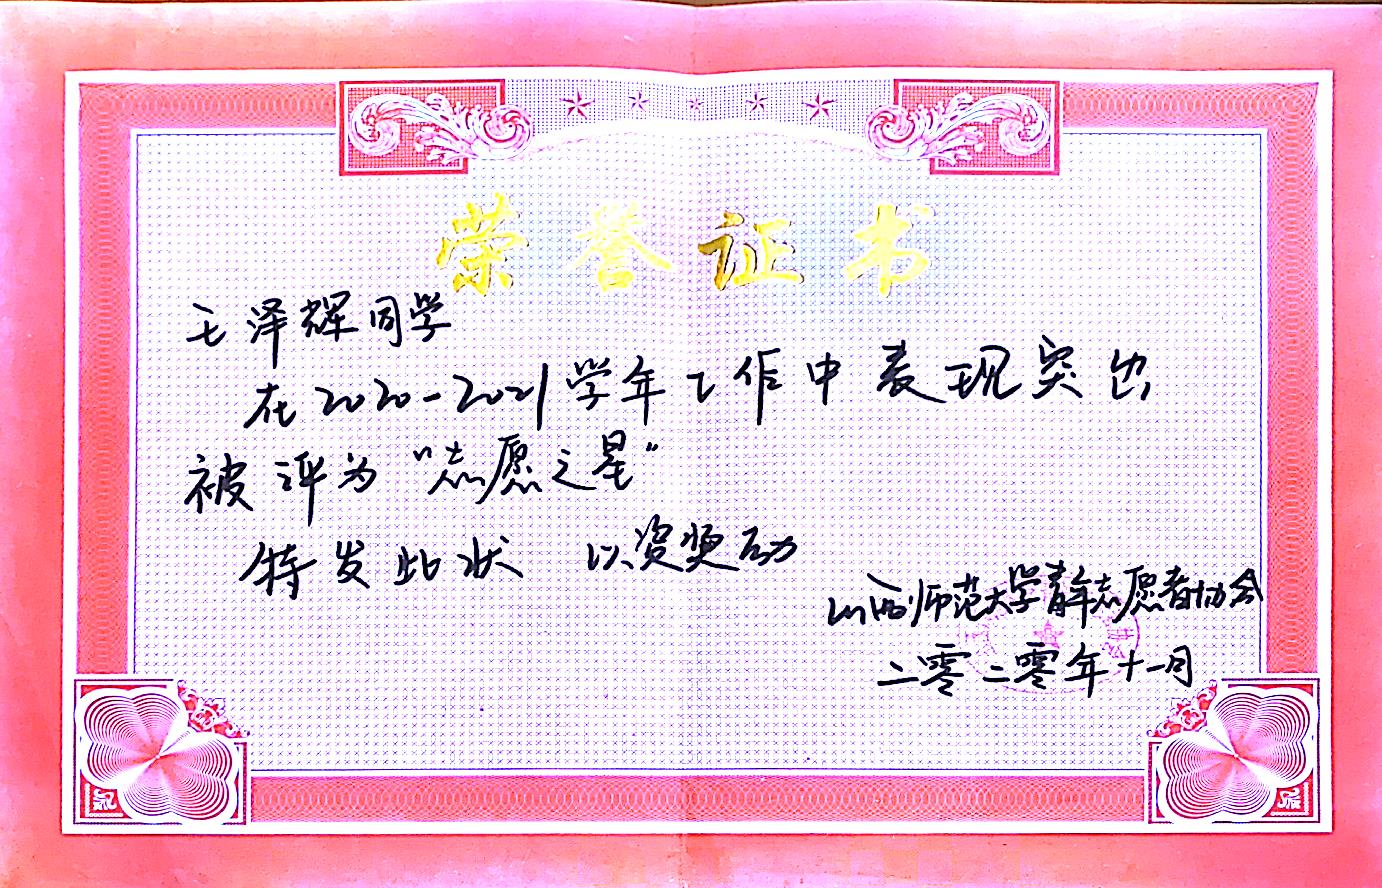 荣誉证书
王泽辉同学
在2020-2021学年工作中表现突出
被评为“志愿之星”
特发此状 以资奖励
山西师范大学青年志愿者协会
二零二零年十一月